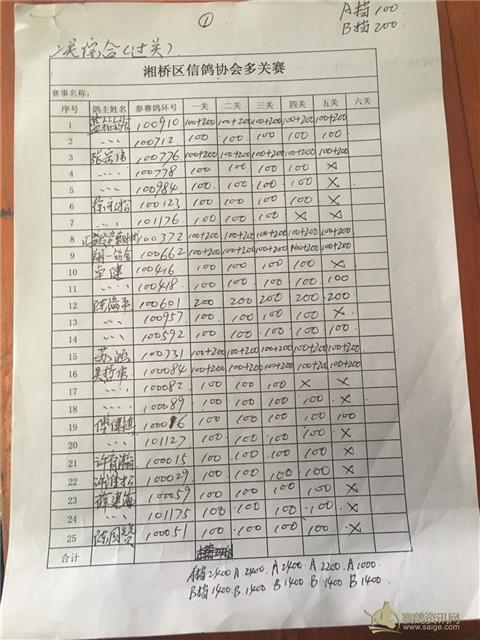 ①
A档 100
B档 200
综合(过关)
湘桥区信鸽协会多关赛
赛事名称:
序号 鸽主姓名 参赛鸽环号 一关 二关 三关 四关 五关 六关
1 100910 100+200 100+200 100+200 100+200 100+200
2 〃 100712 100 100 100 100 100
3 100776 100+200 100+200 100+200 100+200 100+200
4 〃 100778 100 100 100 100 ×
5 〃 100984 100 100 100 100 ×
6 100123 100 100 100 100 ×
7 〃 101176 100 100 100 × ×
8 100372 100+200 100+200 100+200 100+200 100+200
9 100662 100+200 100+200 100+200 100+200 100+200
10 100416 100 100 100 100 ×
11 〃 100418 100 100 100 100 100
12 100601 200 200 200 200 200
13 〃 100957 100 100 100 100 ×
14 〃 100592 100 100 100 100
15 苏 100731 100+200 100+200 100+200 100+200 100+200
16 100084 100+200 100+200 100+200 100+200 100+200
17 〃 100082 100 100 100 × ×
18 〃 100089 100 100 100 100 ×
19 100 100 100 100 100
20 〃 101127 100 100 100 100 ×
21 100015 100 100 100 100 ×
22 100029 100 100 100 100 ×
23 薛建海 100059 100 100 100 100 ×
24 〃 101175 100 100 100 100 ×
25 100051 100 100 100 100 ×
合计
A档2400 A2400 A2400 A2200 A1000
B档1400 B1400 B1400 B1400 B1400
赛鸽资讯网
www.saige.com